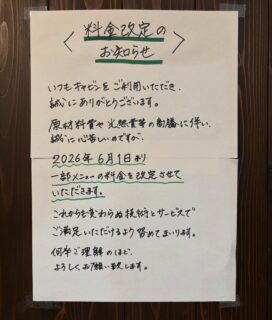 料金改定の
お知らせ
いつもキャビンをご利用いただき、
誠にありがとうございます。
原材料費や光熱費等の高騰に伴い、
誠に心苦しいのですが、
2026年6月1日より
一部メニューの料金を改定させて
いただきます。
これからも変わらぬ技術とサービスで
ご満足いただけるよう努めてまいります。
何卒ご理解のほど、
よろしくお願い致します。